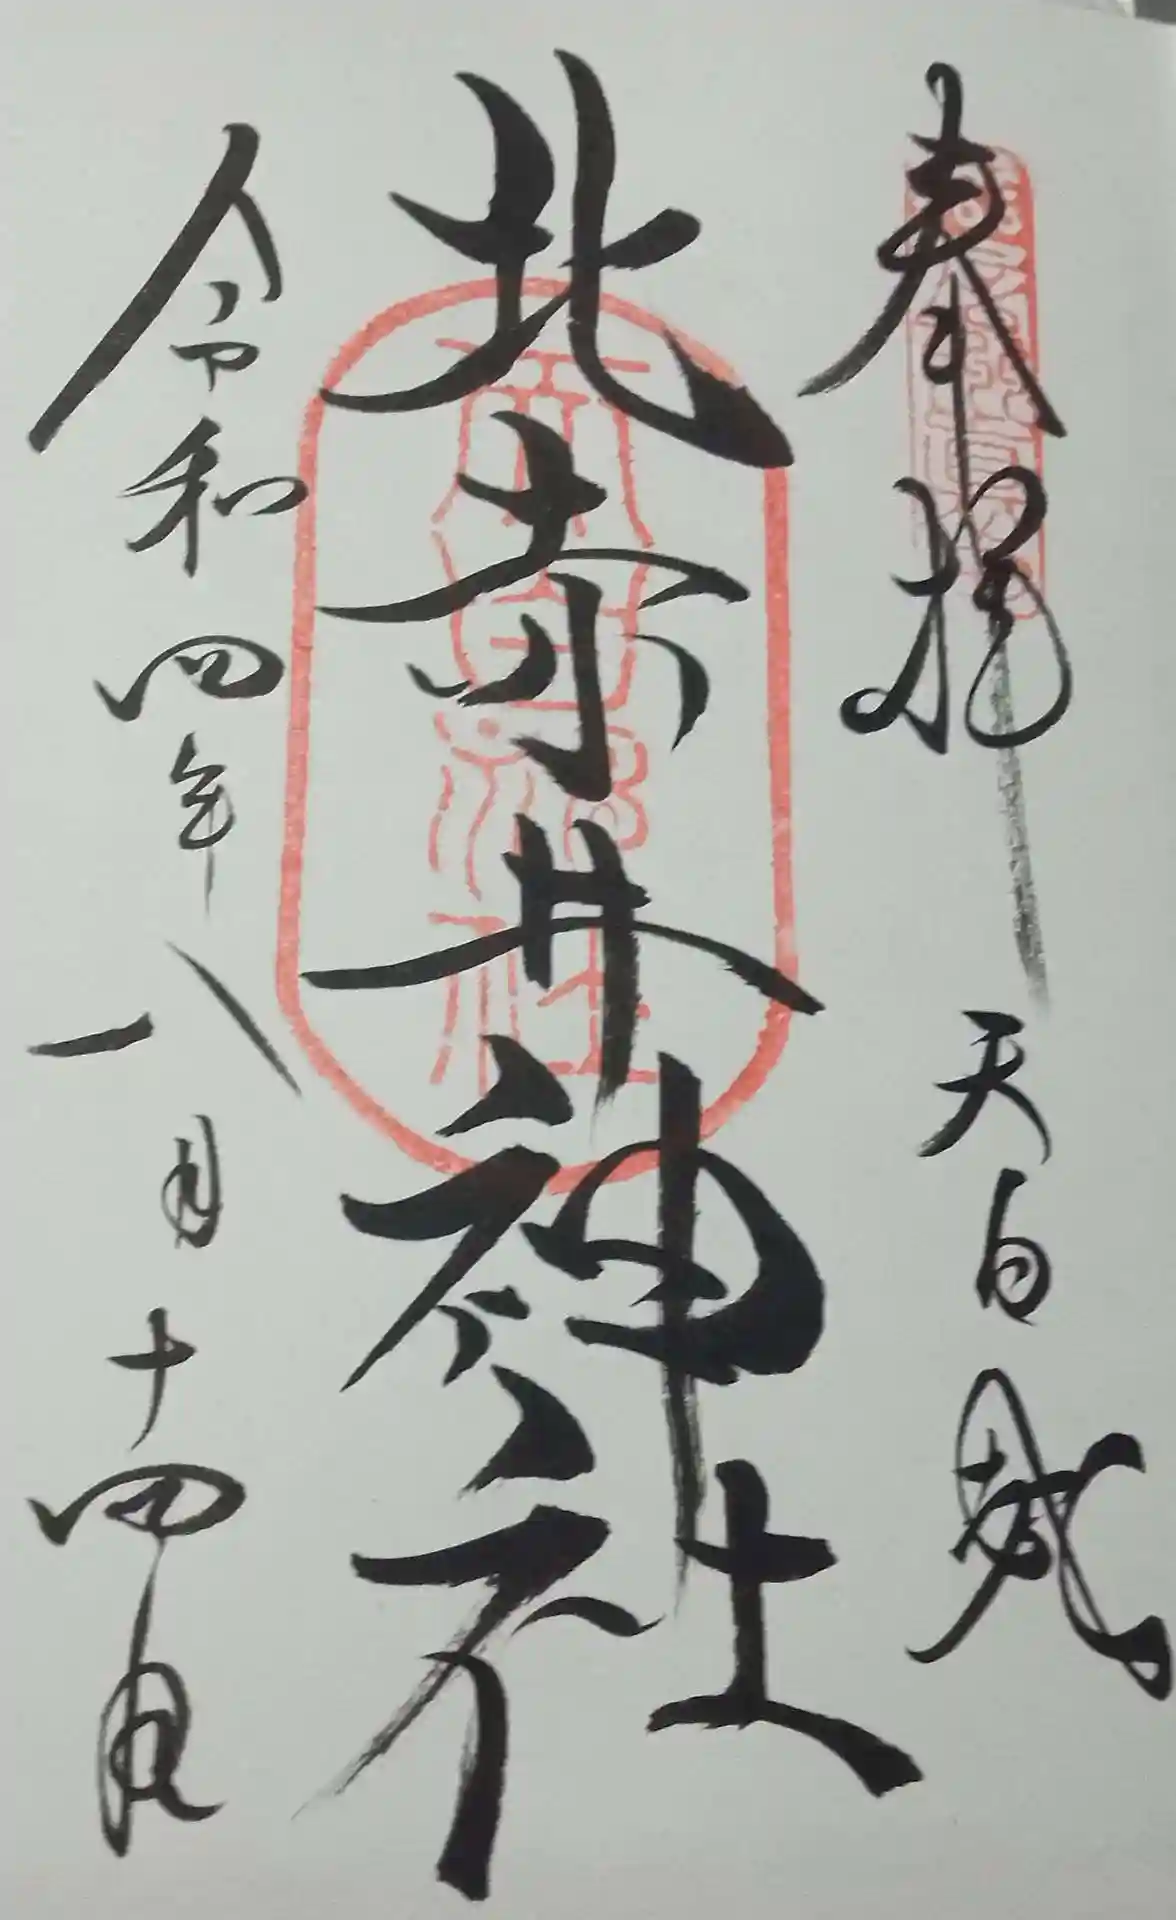 奉拝 天白
北赤井神社
令和四年八月十四日